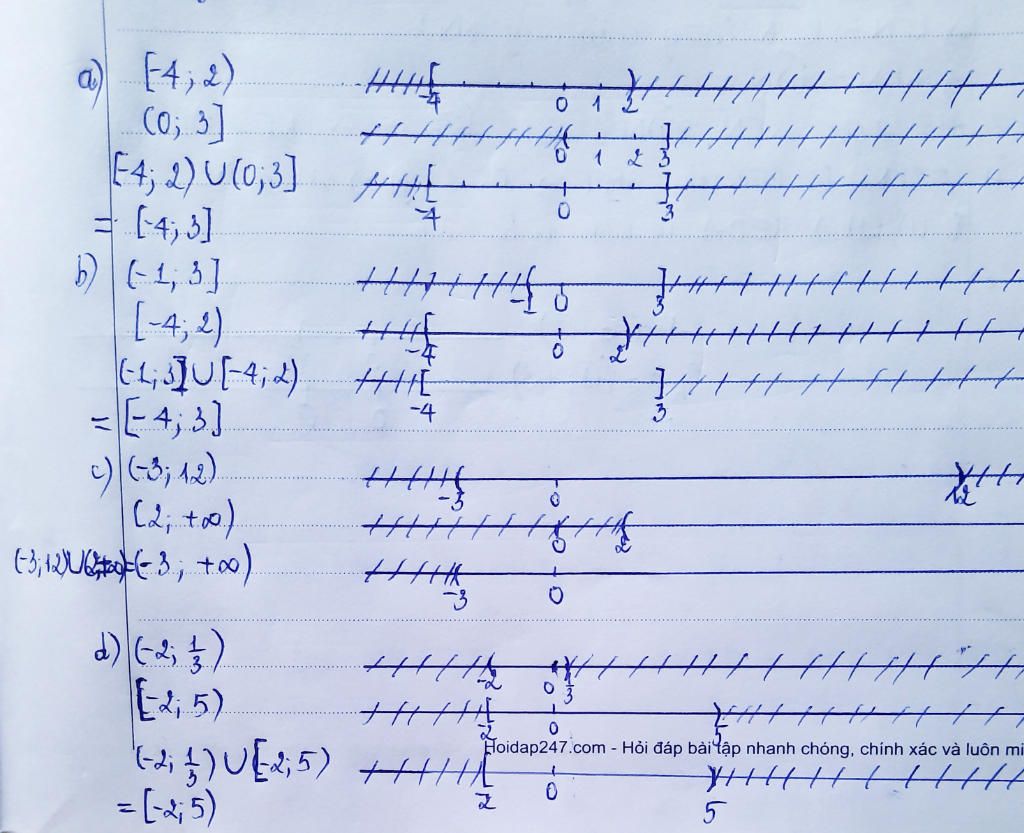 a) [-4; 2) -4 0 1 2
(0; 3] 0 1 2 3
[-4; 2) ∪ (0; 3] -4 0 3
= [-4; 3]
b) (-1; 3] -1 0 3
[-4; 2) -4 0 2
(-1; 3] ∪ [-4; 2) -4 3
= [-4; 3]
c) (-3; 12) -3 0 12
(2; +∞) 0 2
(-3; 12) ∪ (2; +∞) = (-3; +∞) -3 0
d) (-2; 1/3) -2 0 1/3
[-2; 5) -2 0 5
Hoidap247.com - Hỏi đáp bài tập nhanh chóng, chính xác và luôn mi
(-2; 1/3) ∪ [-2; 5) -2 0 5
= [-2; 5)